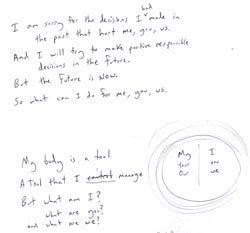 I am sorry for the decisions I had made in
the past that hurt me, you, us.
And I will try to make positive responsible
decisions in the future.
But the future is Now.
So what can I do for me, you, us.
My body is a tool
A Tool that I control manage
But what am I?
what are you?
and what are we?
My I
Your you
Our we